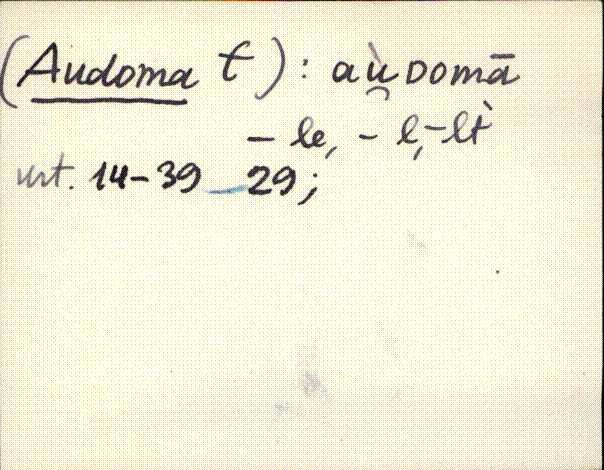 (Audoma t) : aù̯ᴅomā
– le, – l, – lt
urt. 14–39 29;